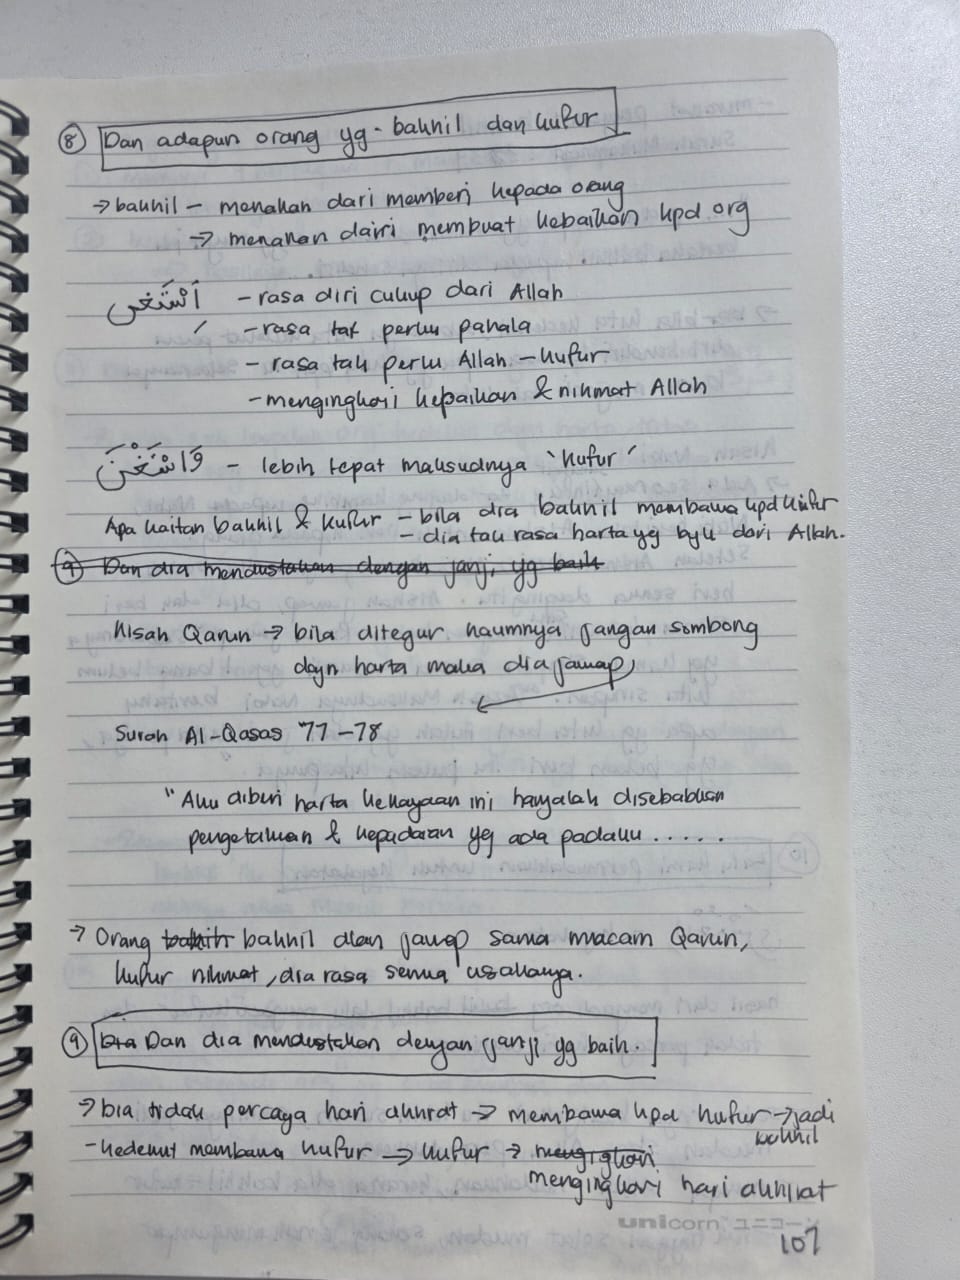 8 Dan adapun orang yg. bakhil dan kufur
→ bakhil – menahan dari memberi kepada orang
→ menahan dairi membuat kebaikan kpd org
اَسْتَغَنى – rasa diri cukup dari Allah
– rasa tak perlu pahala
– rasa tak perlu Allah – kufur
– mengingkari kebaikan & nikmat Allah
وَاسْتَغْنَىٰ – lebih tepat maksudnya 'kufur'
Apa kaitan bakhil & kufur – bila dia bakhil membawa kpd kufur
– dia tak rasa harta yg byk dari Allah.
9 Dan dia mendustakan dengan janji yg baik
Kisah Qarun → bila ditegur kaumnya jangan sombong
dgn harta maka dia jawap,
Surah Al-Qasas 77–78
"Aku diberi harta kekayaan ini hanyalah disebabkan
pengetahuan & kepadaian yg ada padaku ......
→ Orang bakhil akan jawap sama macam Qarun,
kufur nikmat, dia rasa semua usahanya.
9 Dan dia mendustakan dengan janji yg baik.
→ bia tidak percaya hari akhrat → membawa kpd kufur → jadi
bakhil
– kedekut membawa kufur → kufur →
mengingkari hari akhirat
unicorn ユニコーン
107